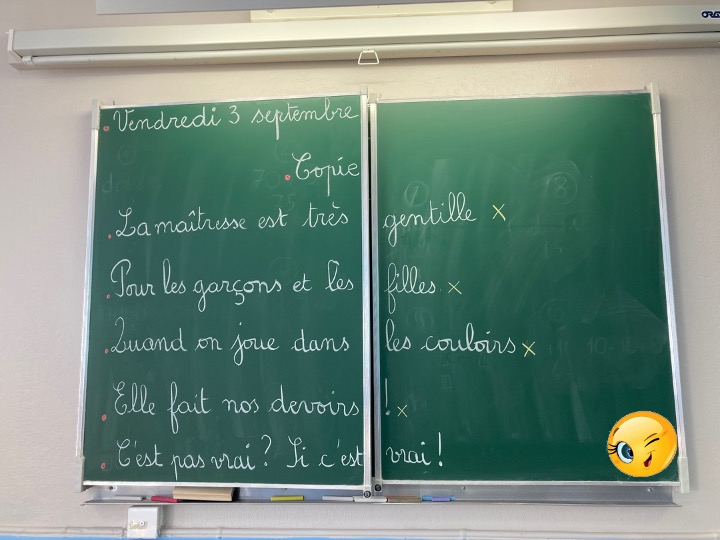 Vendredi 3 septembre
Copie
La maîtresse est très gentille x
Pour les garçons et les filles x
Quand on joue dans les couloirs x
Elle fait nos devoirs ! x
C'est pas vrai ? Si c'est vrai !